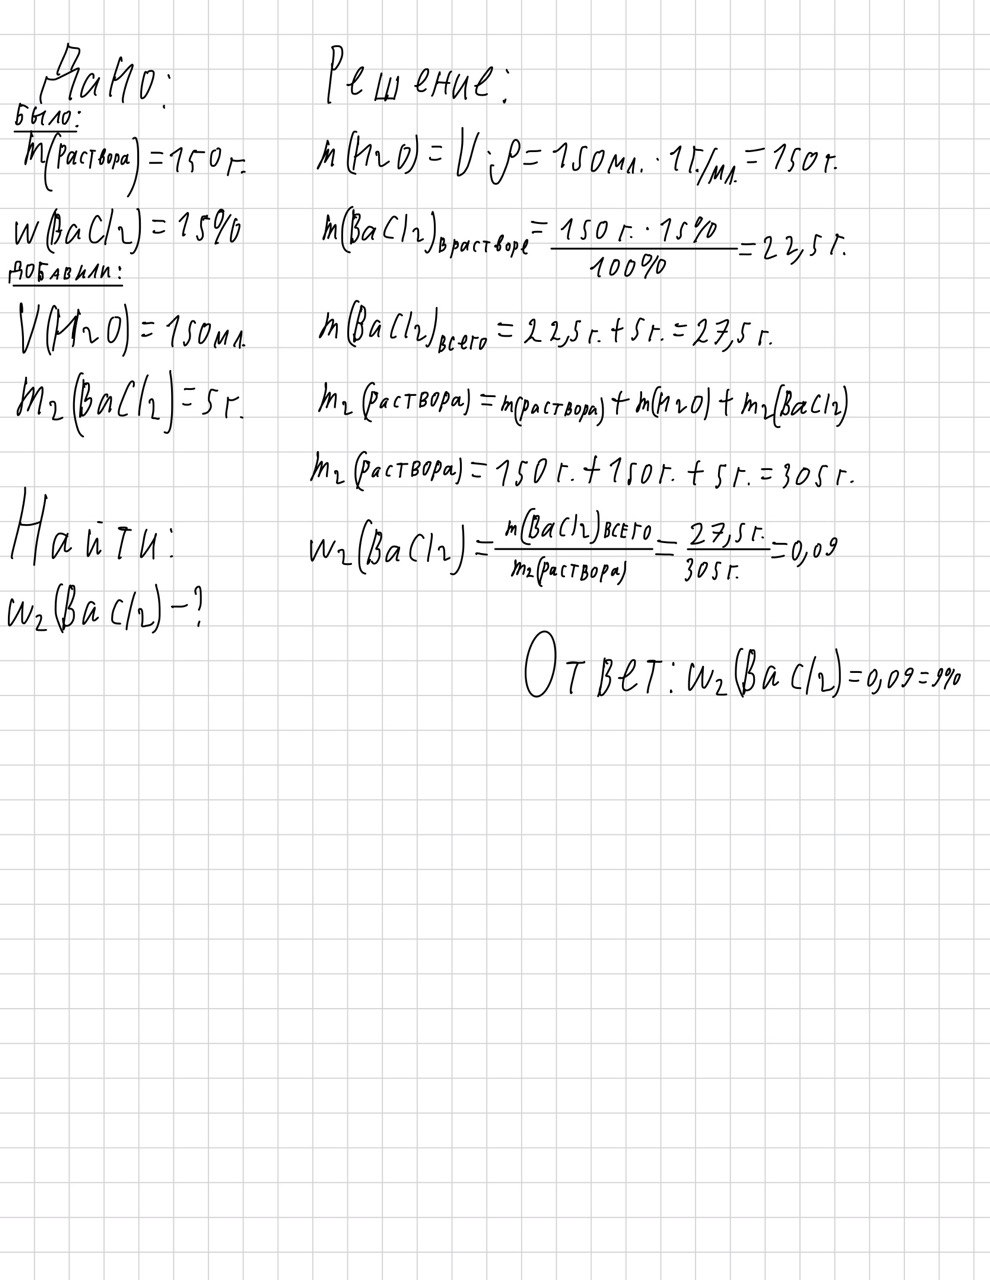 Дано:
было:
m(раствора) = 150 г.
w(BaCl2) = 15%
добавили:
V(H2O) = 150 мл.
m2(BaCl2) = 5 г.
Найти:
w2(BaCl2) - ?
Решение:
m(H2O) = V · ρ = 150 мл. · 1 г./мл. = 150 г.
m(BaCl2)в растворе = 150 г. · 15% / 100% = 22,5 г.
m(BaCl2)всего = 22,5 г. + 5 г. = 27,5 г.
m2(раствора) = m(раствора) + m(H2O) + m2(BaCl2)
m2(раствора) = 150 г. + 150 г. + 5 г. = 305 г.
w2(BaCl2) = m(BaCl2)всего / m2(раствора) = 27,5 г. / 305 г. = 0,09
Ответ: w2(BaCl2) = 0,09 = 9%